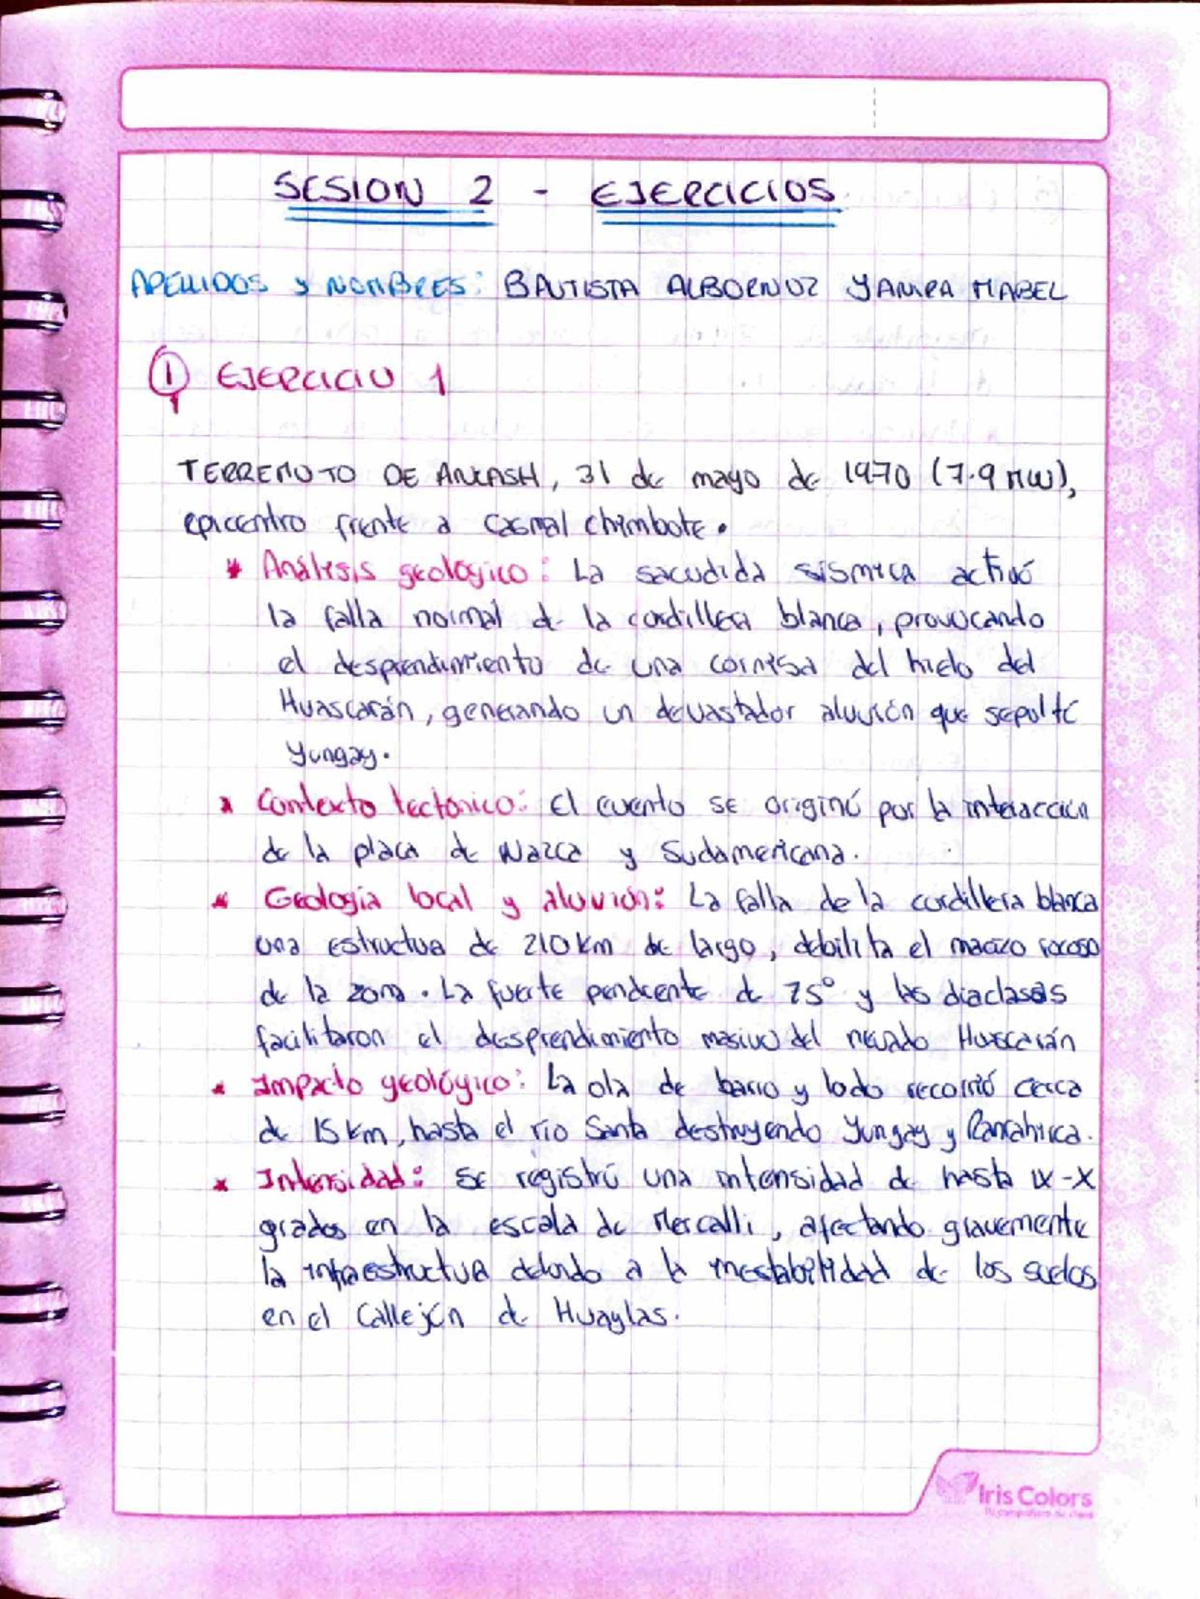 SESION 2 - EJERCICIOS
APELLIDOS Y NOMBRES: BAUTISTA ALBORNOZ YAMIRA MABEL
1 EJERCICIO 1
TERREMOTO DE ANCASH, 31 de mayo de 1970 (7.9 MW),
epicentro frente a Casma/chimbote.
* Análisis geológico: La sacudida sísmica activó
la falla normal de la cordillera blanca, provocando
el desprendimiento de una cornisa del hielo del
Huascarán, generando un devastador aluvión que sepultó
Yungay.
* Contexto tectónico: El evento se originó por la interacción
de la placa de Nazca y Sudamericana.
* Geología local y aluvión: La falla de la cordillera blanca
una estructura de 210 km de largo, debilita el macizo rocoso
de la zona. La fuerte pendiente de 75° y las diaclasas
facilitaron el desprendimiento masivo del nevado Huascarán
* Impacto geológico: La ola de barro y lodo recorrió cerca
de 15 km, hasta el río Santa destruyendo Yungay y Ranrahirca.
* Intensidad: Se registró una intensidad de hasta IX-X
grados en la escala de Mercalli, afectando gravemente
la infraestructura debido a la inestabilidad de los suelos
en el Callejón de Huaylas.
Iris Colors